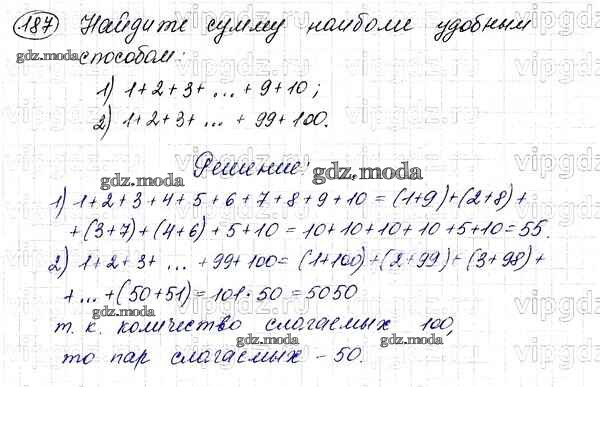 187 Найдите сумму наиболее удобным
способом:
1) 1+2+3+ ... +9+10;
2) 1+2+3+ ... +99+100.
Решение:
1) 1+2+3+4+5+6+7+8+9+10=(1+9)+(2+8)+
+(3+7)+(4+6)+5+10=10+10+10+10+5+10=55.
2) 1+2+3+ ... +99+100=(1+100)+(2+99)+(3+98)+
+...+(50+51)=101·50=5050
т. к. количество слагаемых 100,
то пар слагаемых - 50.
gdz.moda
gdz.moda
gdz.moda
gdz.moda
gdz.moda
gdz.moda
gdz.moda
vipgdz